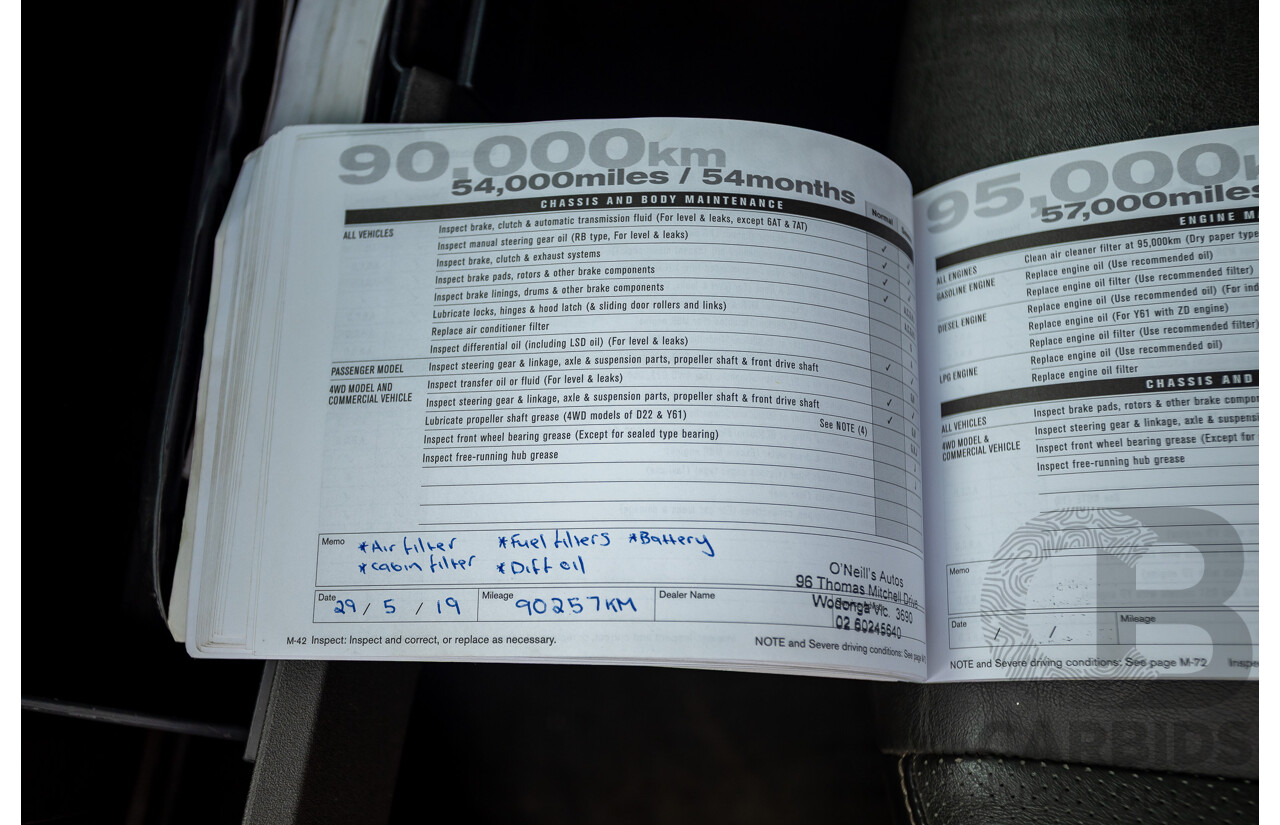 90,000km
54,000miles / 54months
CHASSIS AND BODY MAINTENANCE
Normal
ALL VEHICLES
Inspect brake, clutch & automatic transmission fluid (For level & leaks, except 6AT & 7AT)
Inspect manual steering gear oil (RB type, For level & leaks) ✓
Inspect brake, clutch & exhaust systems ✓
Inspect brake pads, rotors & other brake components ✓
Inspect brake linings, drums & other brake components ✓
Lubricate locks, hinges & hood latch (& sliding door rollers and links)
Replace air conditioner filter
Inspect differential oil (including LSD oil) (For level & leaks)
PASSENGER MODEL
Inspect steering gear & linkage, axle & suspension parts, propeller shaft & front drive shaft ✓
4WD MODEL AND
COMMERCIAL VEHICLE
Inspect transfer oil or fluid (For level & leaks)
Inspect steering gear & linkage, axle & suspension parts, propeller shaft & front drive shaft ✓
Lubricate propeller shaft grease (4WD models of D22 & Y61) See NOTE (4) ✓
Inspect front wheel bearing grease (Except for sealed type bearing)
Inspect free-running hub grease
Memo
*Air filter *Fuel filters *Battery
*cabin filter *Diff oil
O'Neill's Autos
96 Thomas Mitchell Drive
Wodonga Vic. 3690
02 60245640
Date 29 / 5 / 19 Mileage 90257KM Dealer Name
M-42 Inspect: Inspect and correct, or replace as necessary.
NOTE and Severe driving conditions: See
95,000k
57,000miles
ENGINE MA
ALL ENGINES
Clean air cleaner filter at 95,000km (Dry paper type
GASOLINE ENGINE
Replace engine oil (Use recommended oil)
Replace engine oil filter (Use recommended filter)
DIESEL ENGINE
Replace engine oil (Use recommended oil) (For ind
Replace engine oil (For Y61 with ZD engine)
Replace engine oil filter (Use recommended filter)
LPG ENGINE
Replace engine oil (Use recommended oil)
Replace engine oil filter
CHASSIS AND
ALL VEHICLES
Inspect brake pads, rotors & other brake compon
4WD MODEL &
COMMERCIAL VEHICLE
Inspect steering gear & linkage, axle & suspensi
Inspect front wheel bearing grease (Except for
Inspect free-running hub grease
Memo
Date / / Mileage
NOTE and Severe driving conditions: See page M-72 Inspe
CB
CARBIDS